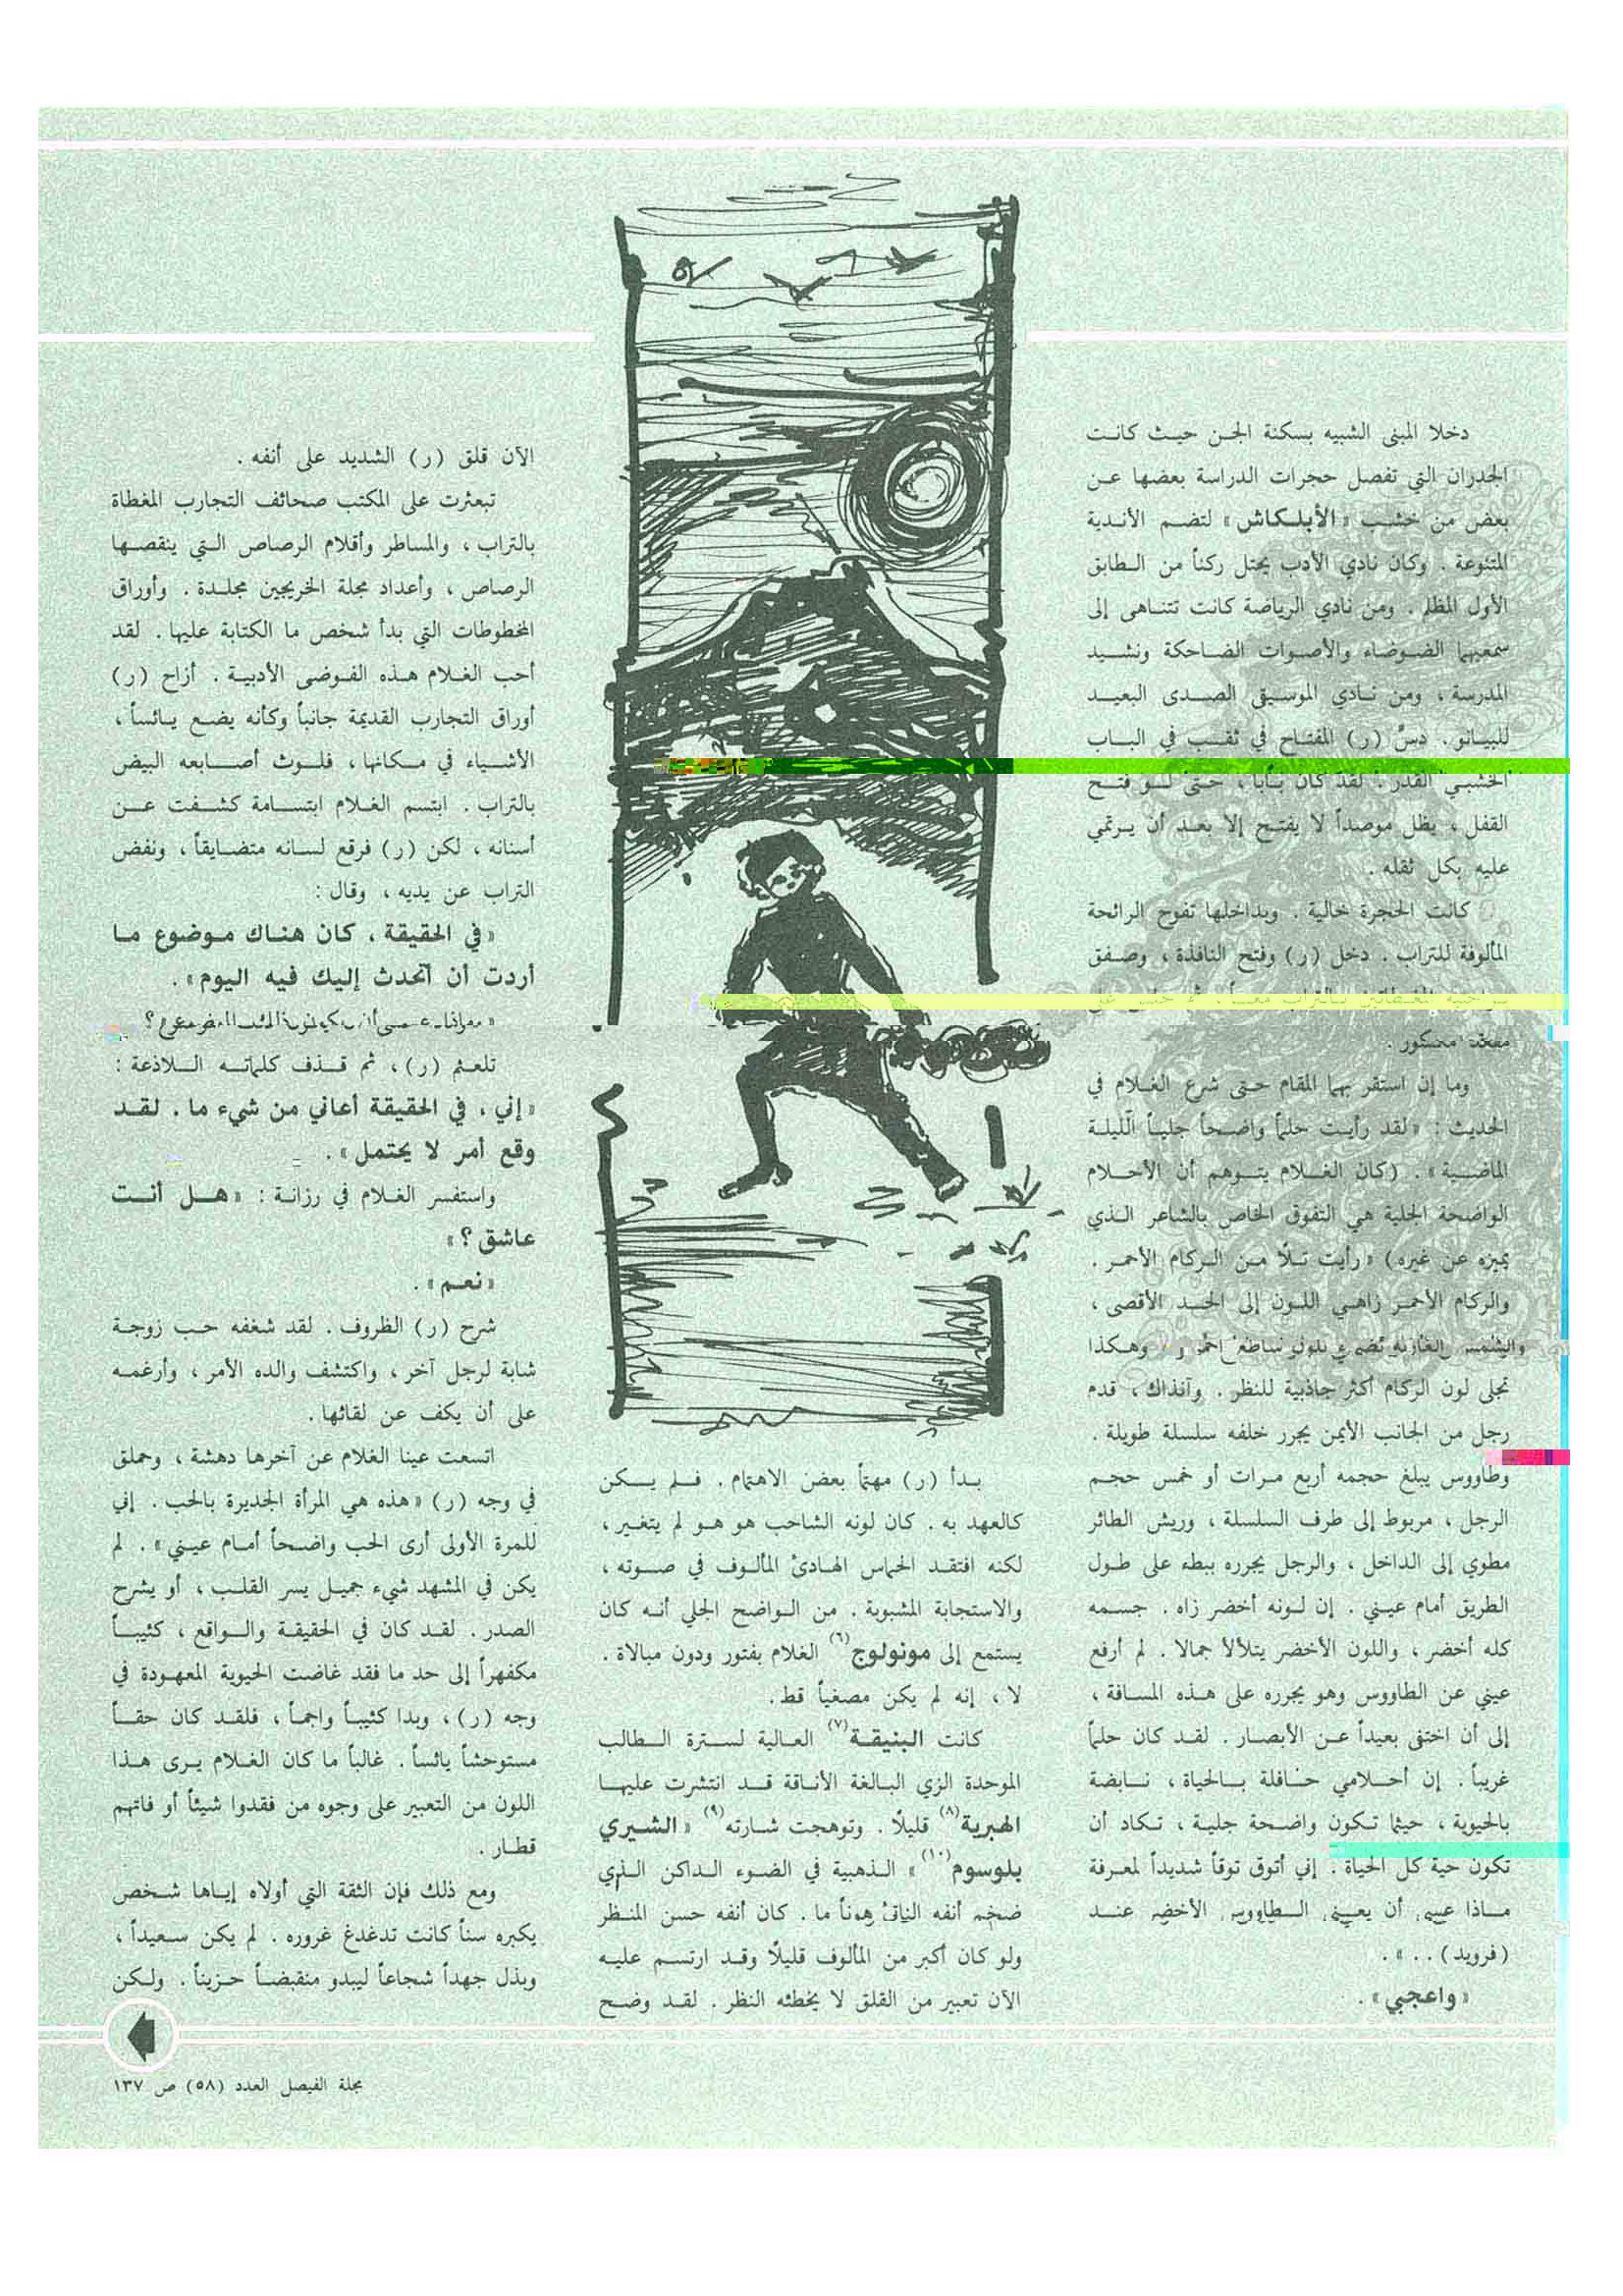 دخلا المبنى الشبيه بسكنة الجن حيث كانت
الجدران التي تفصل حجرات الدراسة بعضها عن
بعض من خشب « الأبلكاش » لتضم الأندية
المتنوعة . وكان نادي الأدب يحتل ركناً من الطابق
الأول المظلم . ومن نادي الرياضة كانت تتناهى إلى
سمعيهما الضوضاء والأصوات الضاحكة ونشيد
المدرسة ، ومن نادي الموسيقى الصدى البعيد
للبيانو . دسَّ (ر) المفتاح في ثقب في الباب
الخشبي القذر . لقد كان باباً ، حتى لو فتح
القفل ، يظل موصداً لا يفتح إلا بعد أن يرتمي
عليه بكل ثقله .
كانت الحجرة خالية . وبداخلها تفوح الرائحة
المألوفة للتراب . دخل (ر) وفتح النافذة ، وصفق
بالتراب معاً ، ثم جلس على
مقعد مكسور .
وما إن استقر بهما المقام حتى شرع الغلام في
الحديث : « لقد رأيت حلماً واضحاً جلياً الليلة
الماضية » . (كان الغلام يتوهم أن الأحلام
الواضحة الجلية هي التفوق الخاص بالشاعر الذي
يميزه عن غيره) « رأيت تلًا من الركام الأحمر .
والركام الأحمر زاهي اللون إلى الحد الأقصى ،
والشمس الغاربة تضيء بلون ساطع أحمر وهكذا
تجلى لون الركام أكثر جاذبية للنظر . وآنذاك ، قدم
رجل من الجانب الأيمن يجرر خلفه سلسلة طويلة .
وطاووس يبلغ حجمه أربع مرات أو خمس حجم
الرجل ، مربوط إلى طرف السلسلة ، وريش الطائر
مطوي إلى الداخل ، والرجل يجرره ببطء على طول
الطريق أمام عيني . إن لونه أخضر زاه . جسمه
كله أخضر ، واللون الأخضر يتلألأ جمالا . لم أرفع
عيني عن الطاووس وهو يجرره على هذه المسافة ،
إلى أن اختفى بعيداً عن الأبصار . لقد كان حلماً
غريباً . إن أحلامي حافلة بالحياة ، نابضة
بالحيوية ، حيثما تكون واضحة جلية ، تكاد أن
تكون حية كل الحياة . إني أتوق توقاً شديداً لمعرفة
ماذا عسى أن يعني الطاووس الأخضر عند
(فرويد) . . » .
« واعجبي » .
بدأ (ر) مهتماً بعض الاهتمام . فلم يكن
كالعهد به . كان لونه الشاحب هو هو لم يتغير ،
لكنه افتقد الحماس الهادئ المألوف في صوته ،
والاستجابة المشبوبة . من الواضح الجلي أنه كان
يستمع إلى مونولوج(٦) الغلام بفتور ودون مبالاة .
لا ، إنه لم يكن مصغياً قط .
كانت البنيقة(٧) العالية لسترة الطالب
الموحدة الزي البالغة الأناقة قد انتشرت عليها
الهبرية(٨) قليلًا . وتوهجت شارته(٩) « الشيري
بلوسوم(١٠) » الذهبية في الضوء الداكن الذي
ضخم أنفه الناتئ هوناً ما . كان أنفه حسن المنظر
ولو كان أكبر من المألوف قليلًا وقد ارتسم عليه
الآن تعبير من القلق لا يخطئه النظر . لقد وضح
الآن قلق (ر) الشديد على أنفه .
تبعثرت على المكتب صحائف التجارب المغطاة
بالتراب ، والمساطر وأقلام الرصاص التي ينقصها
الرصاص ، وأعداد مجلة الخريجين مجلدة . وأوراق
المخطوطات التي بدأ شخص ما الكتابة عليها . لقد
أحب الغلام هذه الفوضى الأدبية . أزاح (ر)
أوراق التجارب القديمة جانباً وكأنه يضع يائساً ،
الأشياء في مكانها ، فلوث أصابعه البيض
بالتراب . ابتسم الغلام ابتسامة كشفت عن
أسنانه ، لكن (ر) فرقع لسانه متضايقاً ، ونفض
التراب عن يديه ، وقال :
« في الحقيقة ، كان هناك موضوع ما
أردت أن أتحدث إليك فيه اليوم » .
« وماذا عسى أن يكون ذلك الموضوع » ؟
تلعثم (ر) ، ثم قذف كلماته اللاذعة :
« إني ، في الحقيقة أعاني من شيء ما . لقد
وقع أمر لا يحتمل » .
واستفسر الغلام في رزانة : « هل أنت
عاشق ؟ »
« نعم » .
شرح (ر) الظروف . لقد شغفه حب زوجة
شابة لرجل آخر ، واكتشف والده الأمر ، وأرغمه
على أن يكف عن لقائها .
اتسعت عينا الغلام عن آخرها دهشة ، وحملق
في وجه (ر) « هذه هي المرأة الجديرة بالحب . إني
للمرة الأولى أرى الحب واضحاً أمام عيني » . لم
يكن في المشهد شيء جميل يسر القلب ، أو يشرح
الصدر . لقد كان في الحقيقة والواقع ، كئيباً
مكفهراً إلى حد ما فقد غاضت الحيوية المعهودة في
وجه (ر) ، وبدا كئيباً واجماً ، فلقد كان حقاً
مستوحشاً يائساً . غالباً ما كان الغلام يرى هذا
اللون من التعبير على وجوه من فقدوا شيئاً أو فاتهم
قطار .
ومع ذلك فإن الثقة التي أولاه إياها شخص
يكبره سناً كانت تدغدغ غروره . لم يكن سعيداً ،
وبذل جهداً شجاعاً ليبدو منقبضاً حزيناً . ولكن
مجلة الفيصل العدد (٥٨) ص ١٣٧